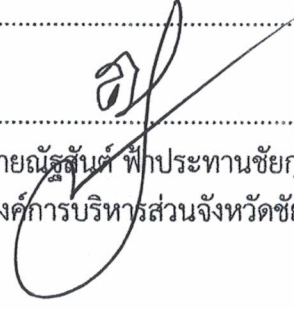 ายณัฐสันต์ ฟ้าประทานชัยกุ
งค์การบริหารส่วนจังหวัดชัย